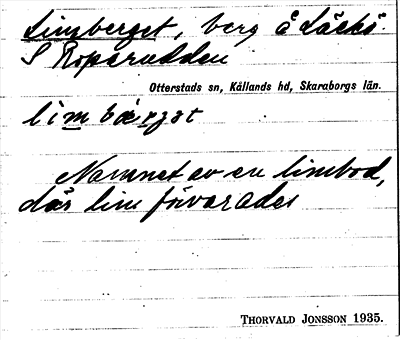 Limberget, berg Å Läckö.
S Roparudden
Otterstads sn, Kållands hd, Skaraborgs län.
limbærgət
Namnet av en limbod,
där lim förvarades
THORVALD JONSSON 1935.